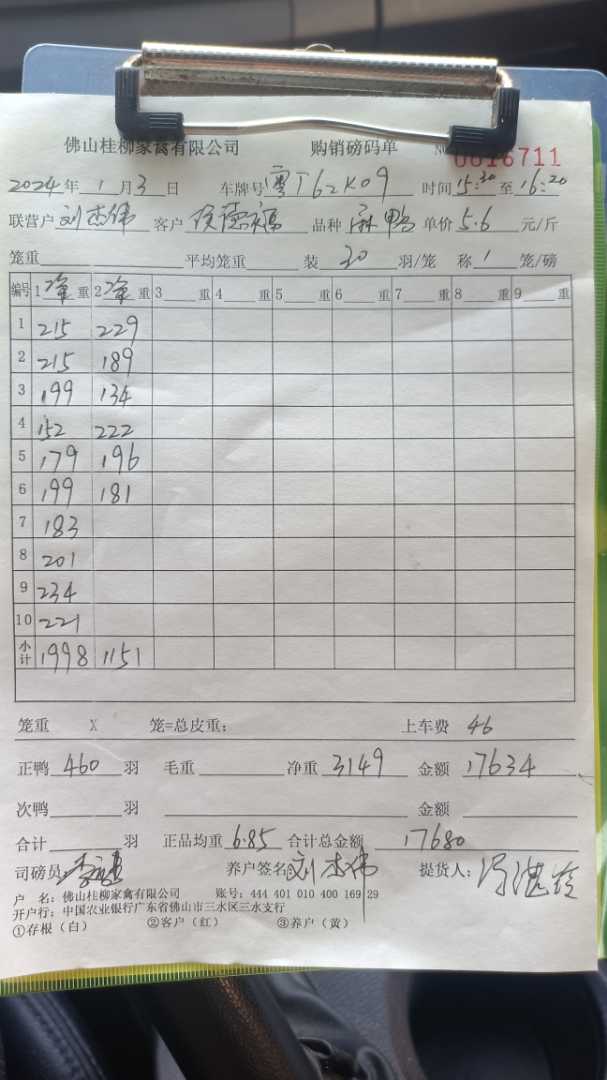 佛山桂柳家禽有限公司 购销磅码单 0016711
2024年1月3日 车牌号粤T62K09 时间15:30至16:20
联营户刘杰伟 客户 德福 品种麻鸭 单价5.6元/斤
笼重 平均笼重 装30羽/笼 称1笼/磅
编号 1净重 2净重 3重 4重 5重 6重 7重 8重 9重
1 215 229
2 215 189
3 199 134
4 152 222
5 179 196
6 199 181
7 183
8 201
9 234
10 221
小计 1998 1151
笼重 X 笼=总皮重: 上车费 46
正鸭460羽 毛重 净重3149 金额17634
次鸭 羽 金额
合计 羽 正品均重6.85 合计总金额17680
司磅员: 养户签名:刘杰伟 提货人:
户 名:佛山桂柳家禽有限公司 账号:444 401 010 400 169 29
开户行:中国农业银行广东省佛山市三水区三水支行
①存根(白) ②客户(红) ③养户(黄)